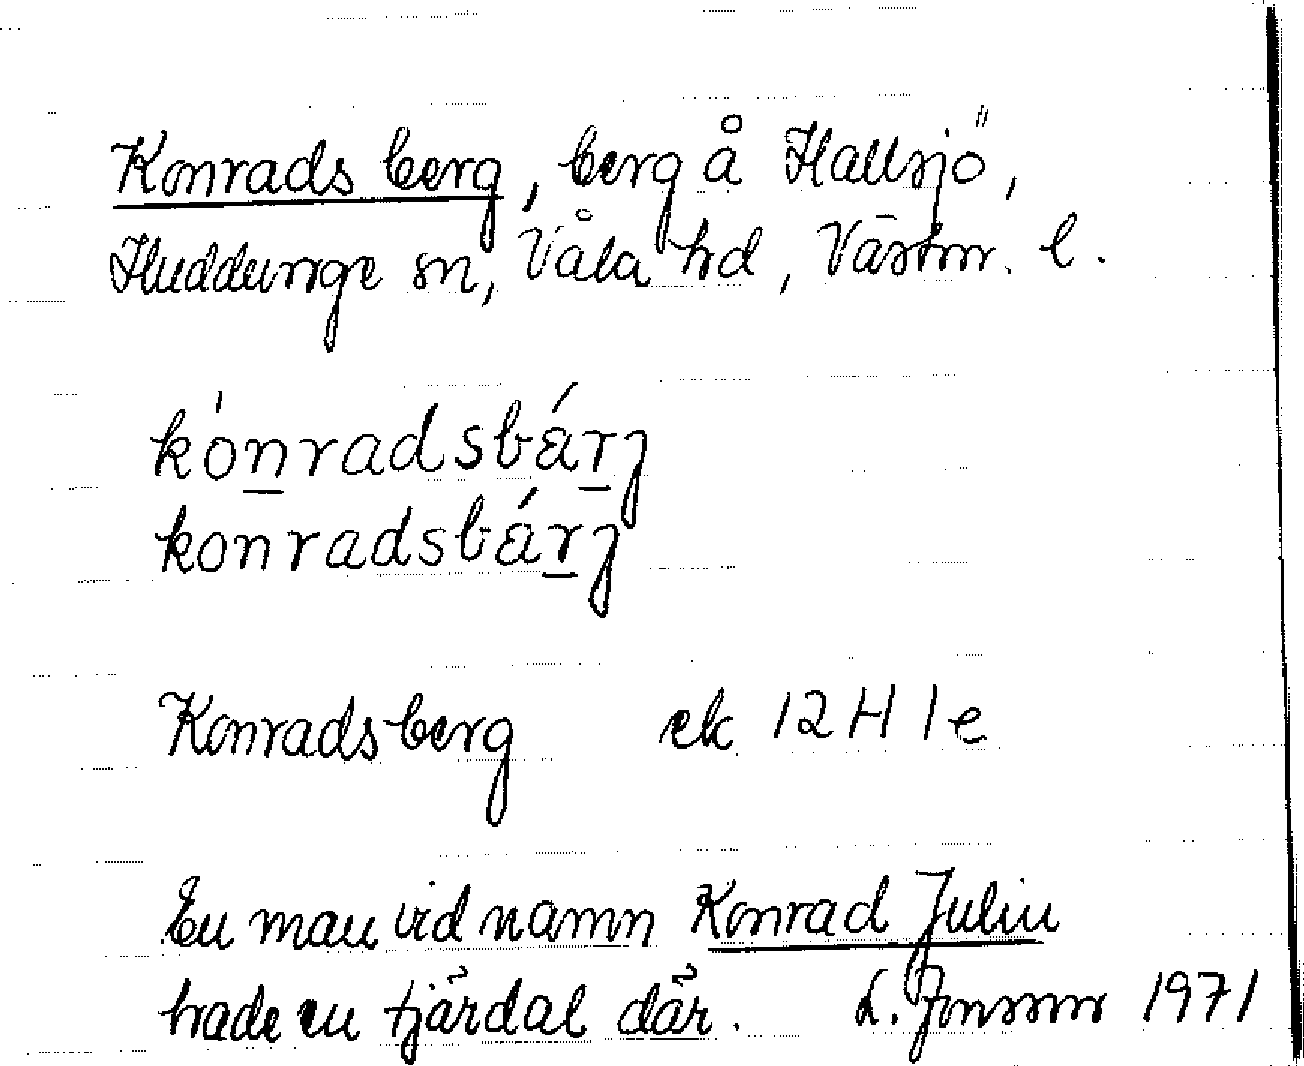 Konradsberg, berg å Hallsjö,
Huddunge sn, Våla hd, Västm. l.
kónradsbárj
konradsbárj
Konradsberg ek 12H 1e
En man vid namn Konrad Julin
hade en tjärdal där. L. Jonsson 1971